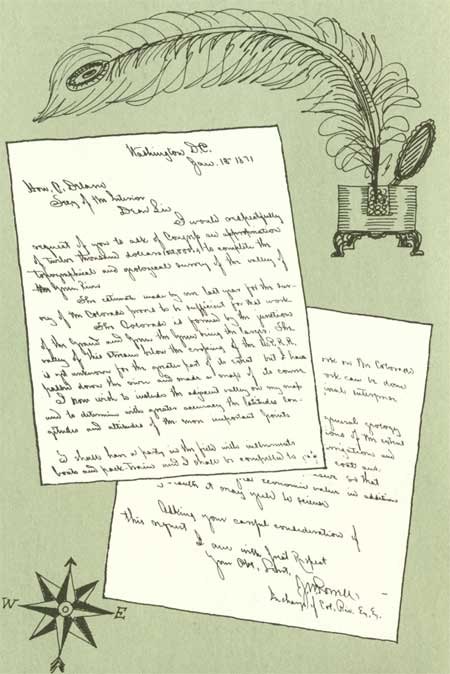 Washington D.C.
Jan. 18th 1871
Hon. C. Delano
Secy. of the Interior
Dear Sir,
I would respectfully
request of you to ask of Congress an appropriation
of twelve thousand dollars to complete the
topographical and geological survey of the valley of
the Green River
The estimate made by me last year for the sur-
vey of the Colorado proved to be sufficient for that work.
The Colorado is formed by the junction
of the Grand and Green the Green being the larger. The
valley of this stream below the crossing of the U.P.R.R.
is yet unknown for the greater part of its extent but I have
passed down the river and made a map of its course
I now wish to include the adjacent valley on my map
and to determine with greater accuracy the latitudes lon-
gitudes and altitudes of the more important points
I shall have a party in the field with instruments
boats and pack train and I shall be compelled to
work on the Colorado
work can be done
general geology
ions of the
irrigation and
cost and
so that
great economic value in addition
results it may yield to science
Asking your careful consideration of
this request
I am with great Respect
Your Obt. Servt.
J W Powell
In charge of Col. Riv. Ex. Ex.
W
E